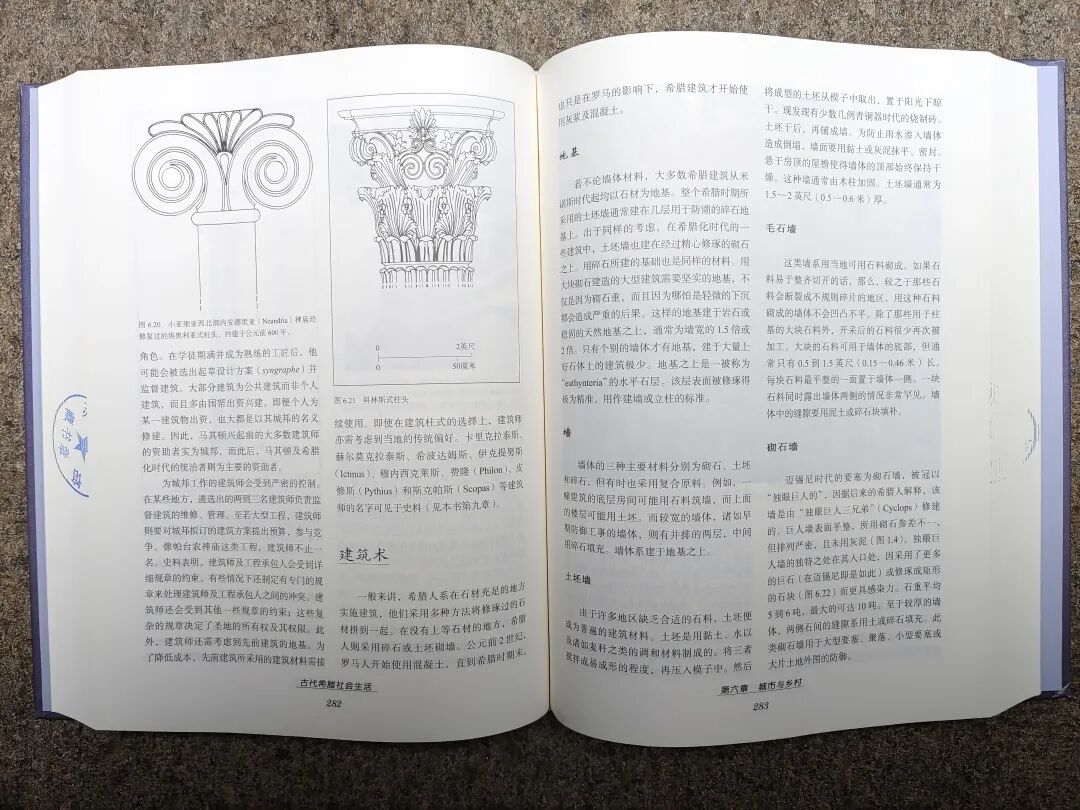 图 6.20 小亚细亚西北部内安德里亚（Neandria）神庙经
修复过的埃奥利亚式柱头，约建于公元前 600 年。
角色。在学徒期满并成为熟练的工匠后，他
可能会被选出起草设计方案（syngraphe）并
监督建筑。大部分建筑为公共建筑而非个人
建筑，而且多由国帑出资兴建。即便个人为
某一建筑物出资，也大都是以其城邦的名义
修建。因此，马其顿兴起前的大多数建筑师
的资助者实为城邦，而此后，马其顿及希腊
化时代的统治者则为主要的资助者。
为城邦工作的建筑师会受到严密的控制。
在某些地方，遴选出的两到三名建筑师负责监
督建筑的维修、管理。至若大型工程，建筑师
则要对城邦拟订的建筑方案提出预算，参与竞
争。像帕台农神庙这类工程，建筑师不止一
名。史料表明，建筑师及工程承包人会受到详
细规章的约束，有些情况下还制定有专门的规
章来处理建筑师及工程承包人之间的冲突。建
筑师还会受到其他一些规章的约束；这些复
杂的规章决定了圣地的所有权及其权限。此
外，建筑师还需考虑到先前建筑的地基。为
了降低成本，先前建筑所采用的建筑材料需接
0 2英尺
0 50厘米
图 6.21 科林斯式柱头
续使用。即使在建筑柱式的选择上，建筑师
亦需考虑到当地的传统偏好。卡里克拉泰斯、
赫尔莫克拉泰斯、希波达姆斯、伊克提努斯
（Ictinus）、穆内西克莱斯、费隆（Philon）、皮
修斯（Pythius）和斯克帕斯（Scopas）等建筑
师的名字可见于史料（见本书第九章）。
建筑术
一般来讲，希腊人系在石材充足的地方
实施建筑，他们采用多种方法将修琢过的石
材拼到一起。在没有上等石材的地方，希腊
人则采用碎石或土坯砌墙。公元前 2 世纪，
罗马人开始使用混凝土，直到希腊时期末，
古代希腊社会生活
282
也只是在罗马的影响下，希腊建筑才开始使
用灰浆及混凝土。
地基
若不论墙体材料，大多数希腊建筑从米
诺斯时代起均以石材为地基。整个希腊时期所
采用的土坯墙通常建在几层用于防潮的碎石地
基上。出于同样的考虑，在希腊化时代的一
些建筑中，土坯墙也建在经过精心修琢的砌石
之上。用碎石所建的基础也是同样的材料。用
大块砌石建造的大型建筑需要坚实的地基，不
仅是因为砌石重，而且因为哪怕是轻微的下沉
都会造成严重的后果。这样的地基建于岩石或
稳固的天然地基之上，通常为墙宽的 1.5 倍或
2 倍。只有个别的墙体才有地基，建于大量上
好石体上的建筑极少。地基之上是一被称为
“euthynteria”的水平石层。该层表面被修琢得
极为精准，用作建墙或立柱的标准。
墙
墙体的三种主要材料分别为砌石、土坯
和碎石，但有时也采用复合原料。例如，一
幢建筑的底层房间可能用石料筑墙，而上面
的楼层可能用土坯。而较宽的墙体，诸如早
期防御工事的墙体，则有并排的两层，中间
用碎石填充。墙体系建于地基之上。
土坯墙
由于许多地区缺乏合适的石料，土坯便
成为普遍的建筑材料。土坯是用黏土、水以
及诸如麦秆之类的调和材料制成的。将三者
搅拌成易成形的程度，再压入模子中。然后
将成型的土坯从模子中取出，置于阳光下晾
干。现发现有少数几例青铜器时代的烧制砖。
土坯干后，再铺成墙。为防止雨水渗入墙体
造成倒塌，墙面要用黏土或灰泥抹平、密封。
悬于房顶的屋檐使得墙体的顶部始终保持干
燥。这种墙通常由木柱加固。土坯墙通常为
1.5—2 英尺（0.5—0.6 米）厚。
毛石墙
这类墙系用当地可用石料砌成。如果石
料易于整齐切开的话，那么，较之于那些石
料会断裂成不规则碎片的地区，用这种石料
砌成的墙体不会凹凸不平。除了那些用于柱
基的大块石料外，开采后的石料很少再次被
加工。大块的石料可用于墙体的底部，但通
常只有 0.5 到 1.5 英尺（0.15—0.46 米）长。
每块石料最平整的一面置于墙体一侧。一块
石料同时露出墙体两侧的情况非常罕见。墙
体中的缝隙要用泥土或碎石块填补。
砌石墙
迈锡尼时代的要塞为砌石墙，被冠以
“独眼巨人的”，因据后来的希腊人解释，该
墙是由“独眼巨人三兄弟”（Cyclops）修建
的。巨人墙表面平整，所用砌石参差不一，
但排列严密，且未用灰泥（图 1.4）。独眼巨
人墙的独特之处在其入口处，因采用了更多
的巨石（在迈锡尼即是如此）或修琢成矩形
的石块（图 6.22）而更具感染力。石重平均
5 到 6 吨，最大的可达 10 吨。至于较厚的墙
体，两侧石间的缝隙系用土或碎石填充。此
类砌石墙用于大型要塞、聚落、小型要塞或
大片土地外围的防御。
第六章 城市与乡村
283